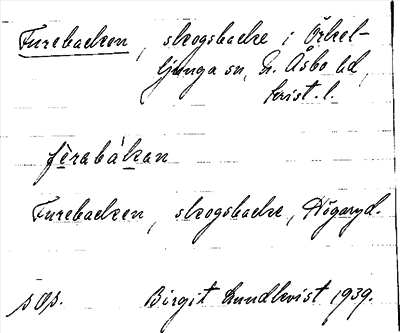 Furebacken, skogsbacke i Örkel-
ljunga sn, N. Åsbo hd,
Krist. l.
fèrabákan
Furebacken, skogsbacke, Högaryd.
s Ös. Birgit Lundkvist 1939.